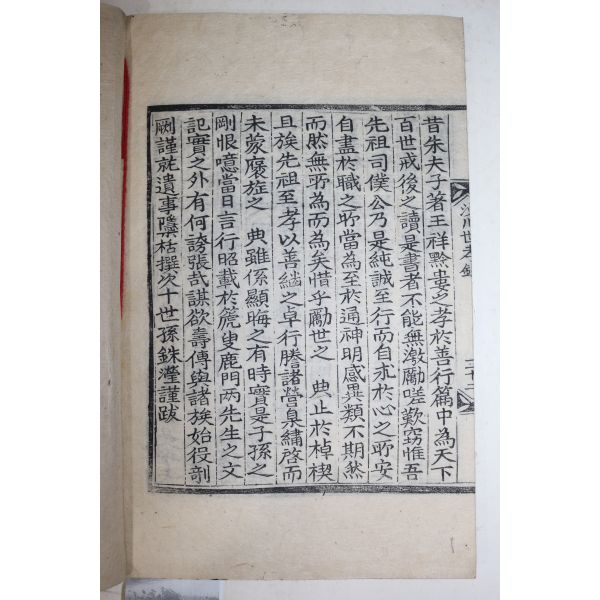 昔朱夫子著王祥黔婁之孝於善行篇中為天下
百世戒後之讀是書者不能無激勵嗟歎竊惟吾
先祖司僕公乃是純誠至行而自求於心之所安
自盡於職之所當為至於通神明感異類不期然
而然無所為而為矣惜乎勵世之 典止於棹楔
且族先祖至孝以善繼之卓行謄諸營臬繡啓而
未蒙褒旌之 典雖係顯晦之有時實是子孫之
剛恨噫當日言行昭載於篪叟鹿門两先生之文
記實之外有何誇張哉謀欲壽傳與諸族始役剞
劂謹就遺事檃栝撰次十世孫銖瀅謹跋
世孝錄
三十二